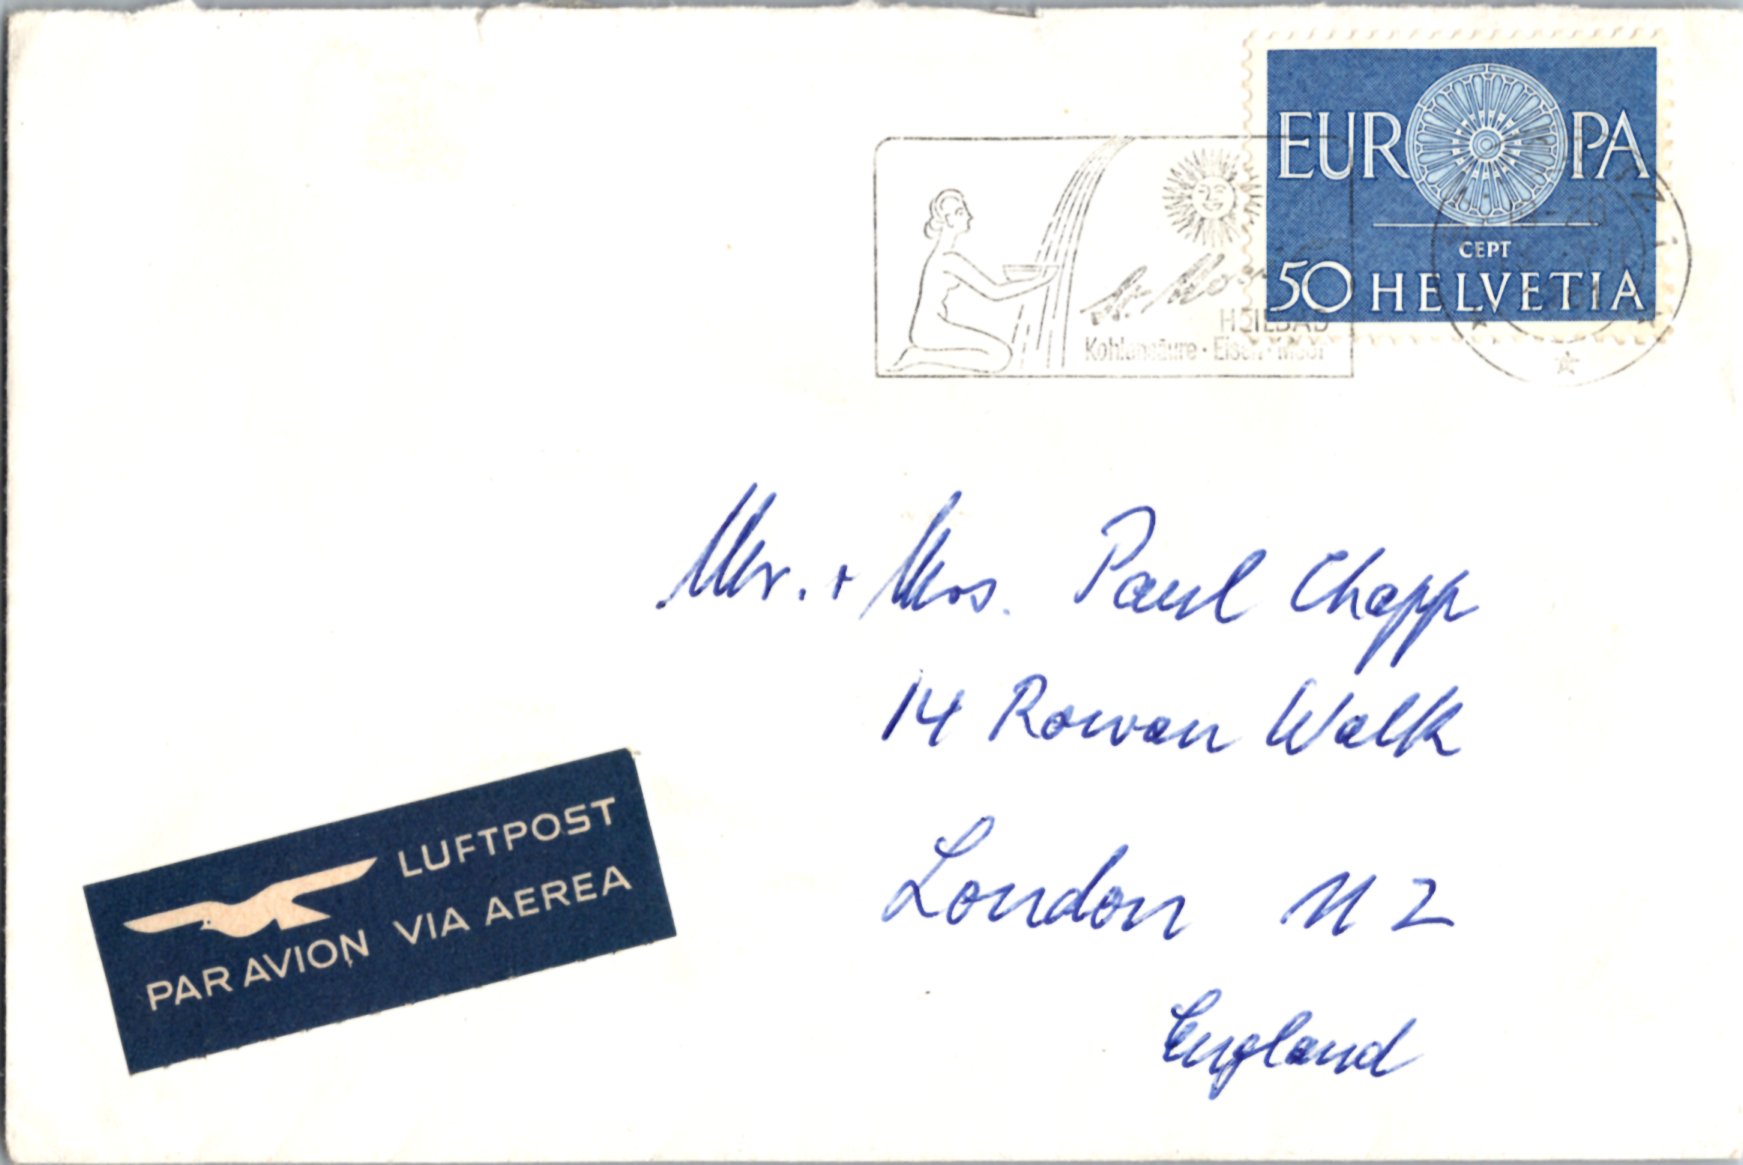 EUROPA
CEPT
50 HELVETIA
St. Moritz
HEILBAD
Kohlensäure · Eisen · Moor
Mr. + Mrs. Paul Chapp
14 Rowan Walk
London N 2
England
LUFTPOST
PAR AVION VIA AEREA